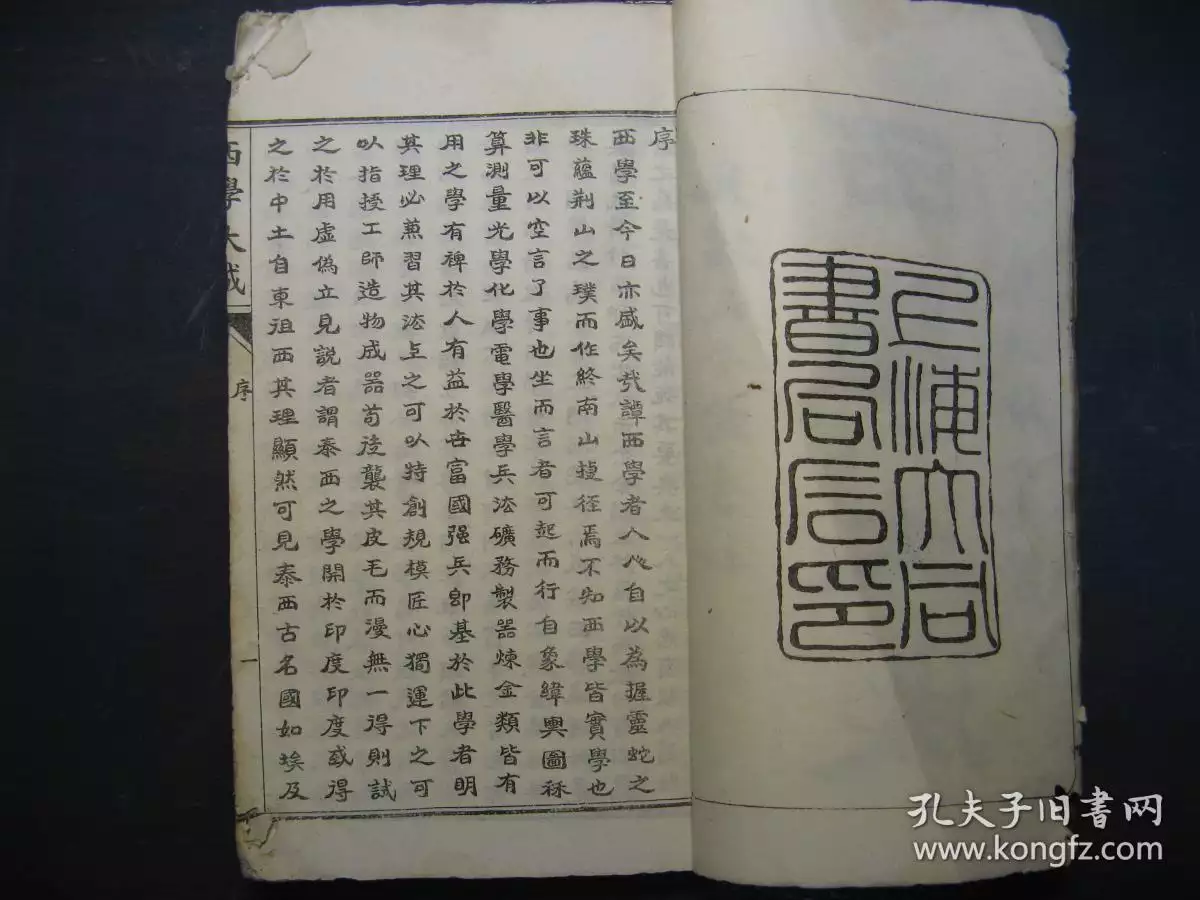 上海大同
書局石印
序
西學至今日亦盛矣㢤譚西學者人人心自以為握靈蛇之
珠蘊荆山之璞而作終南山捷徑焉不知西學皆實學也
非可以空言了事也坐而言者可起而行自象緯輿圖
算測量光學化學電學醫學兵法礦務製器煉金類皆有
用之學有裨於人有益於世富國强兵卽基於此學者明
其理必兼習其法上之可以特創規模匠心獨運下之可
以指授工師造物成器苟徒襲其皮毛而漫無一得則試
之於用虛偽立見説者謂泰西之學開於印度印度或得
之於中土自東徂西其理顯然可見泰西古名國如埃及
西學大成
序
一
孔夫子旧书网
www.kongfz.com